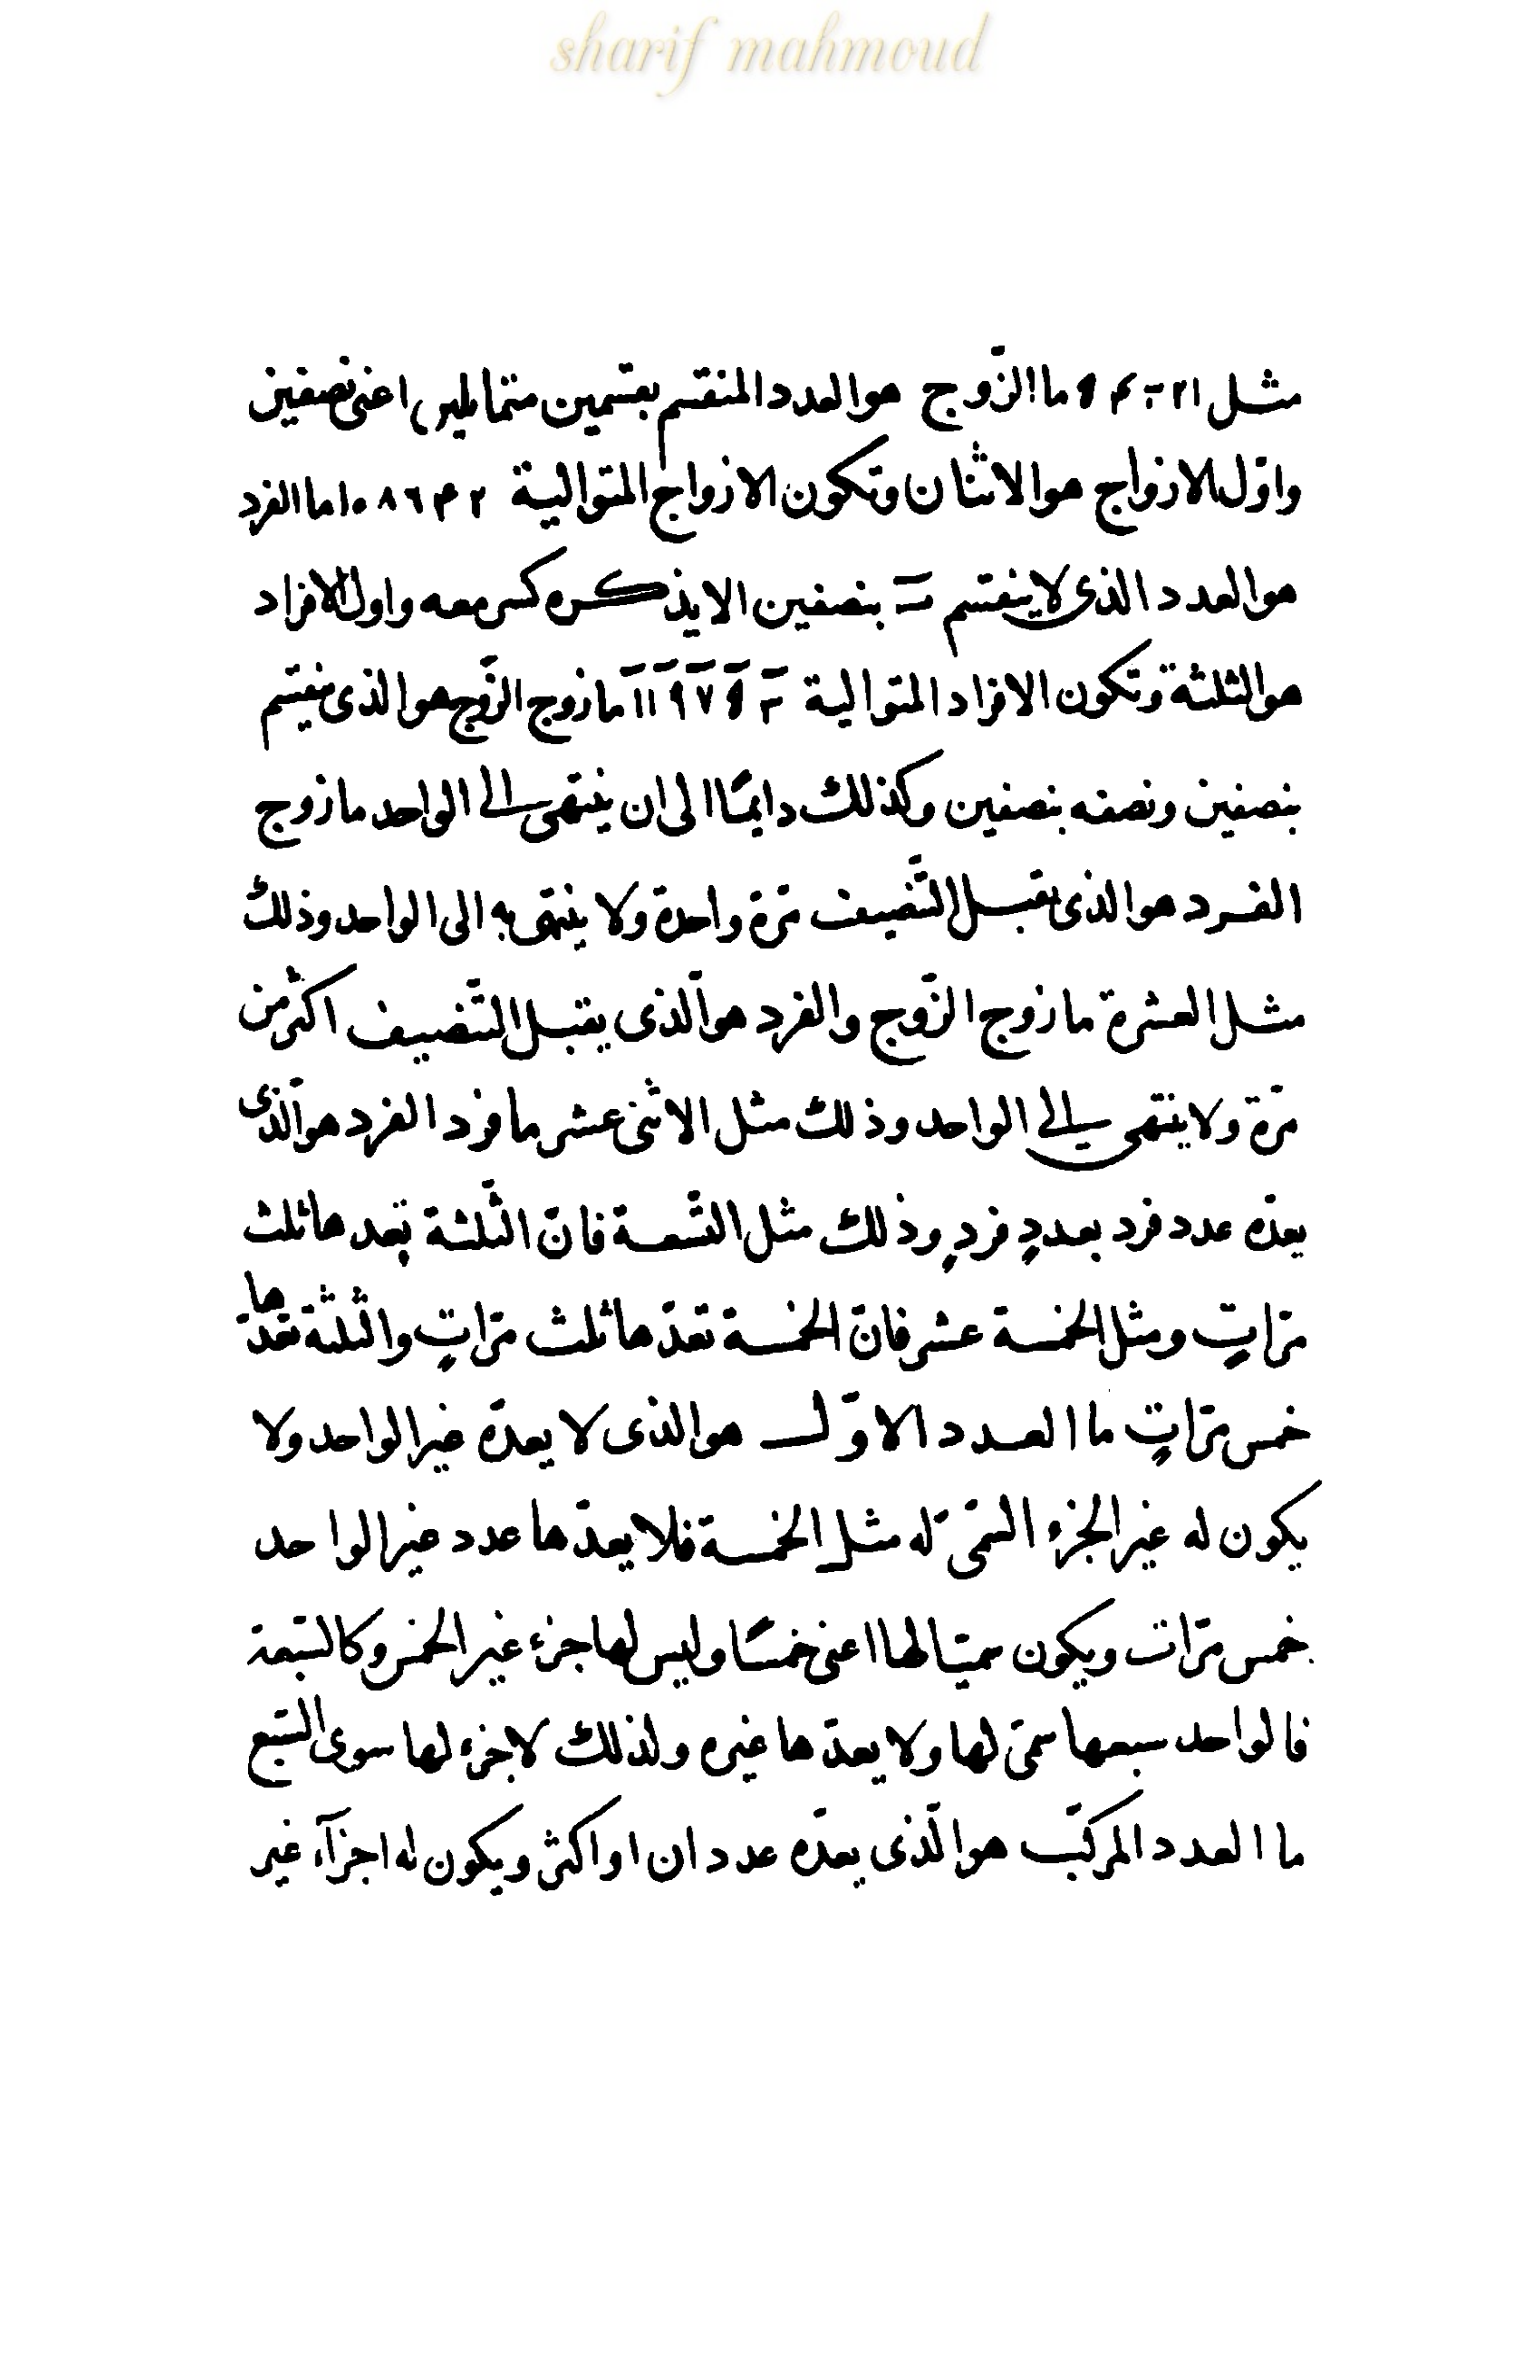 sharif mahmoud
مثل ١ ٢ ٣ ۴ ۵ ما الزّوج هو العدد المنقسم بقسمين متماثلين اعنى نصفين
واوّل الازواج هو الاثنان وتكون الازواج المتوالية ٢ ۴ ٦ ٨ ١٠ ما الفرد
هو العدد الذى لا ينقسم بنصفين الا يذكره كسر معه واول الافراد
هو الثلثة وتكون الافراد المتوالية ٣ ۵ ٧ ٩ ١١ ما زوج الزّوج هو الذى ينقسم
بنصفين ونصفه بنصفين وكذلك دايمًا الى ان ينتهى الى الواحد ما زوج
الفرد هو الذى يقبل التّنصيف مرّة واحدة ولا ينتهى به الى الواحد وذلك
مثل العشرة ما زوج الزّوج والفرد هو الّذى يقبل التّنصيف اكثر من
مرّة ولا ينتهى الى الواحد وذلك مثل الاثنى عشر ما فرد الفرد هو الّذى
يعدّه عدد فرد بعددٍ فردٍ وذلك مثل التّسعة فانّ الثّلثة تعدها ثلث
مرّاتٍ ومثل الخمسة عشر فانّ الخمسة تعدّها ثلث مرّاتٍ والثّلثة تعدّها
خمس مرّاتٍ ما العدد الاوّل هو الذى لا يعدّه غير الواحد ولا
يكون له غير الجزء السّمىّ له مثل الخمسة فلا يعدّها عدد غير الواحد
خمس مرّات ويكون سميّا لها اعنى خمسًا وليس لها جزء غير الخمس وكالسّبعة
فالواحد سبعها سمّى لها ولا يعدّها غيره ولذلك لا جزء لها سوى السّبع
ما العدد المركّب هو الّذى يعدّه عددان او اكثر ويكون له اجزآء غير